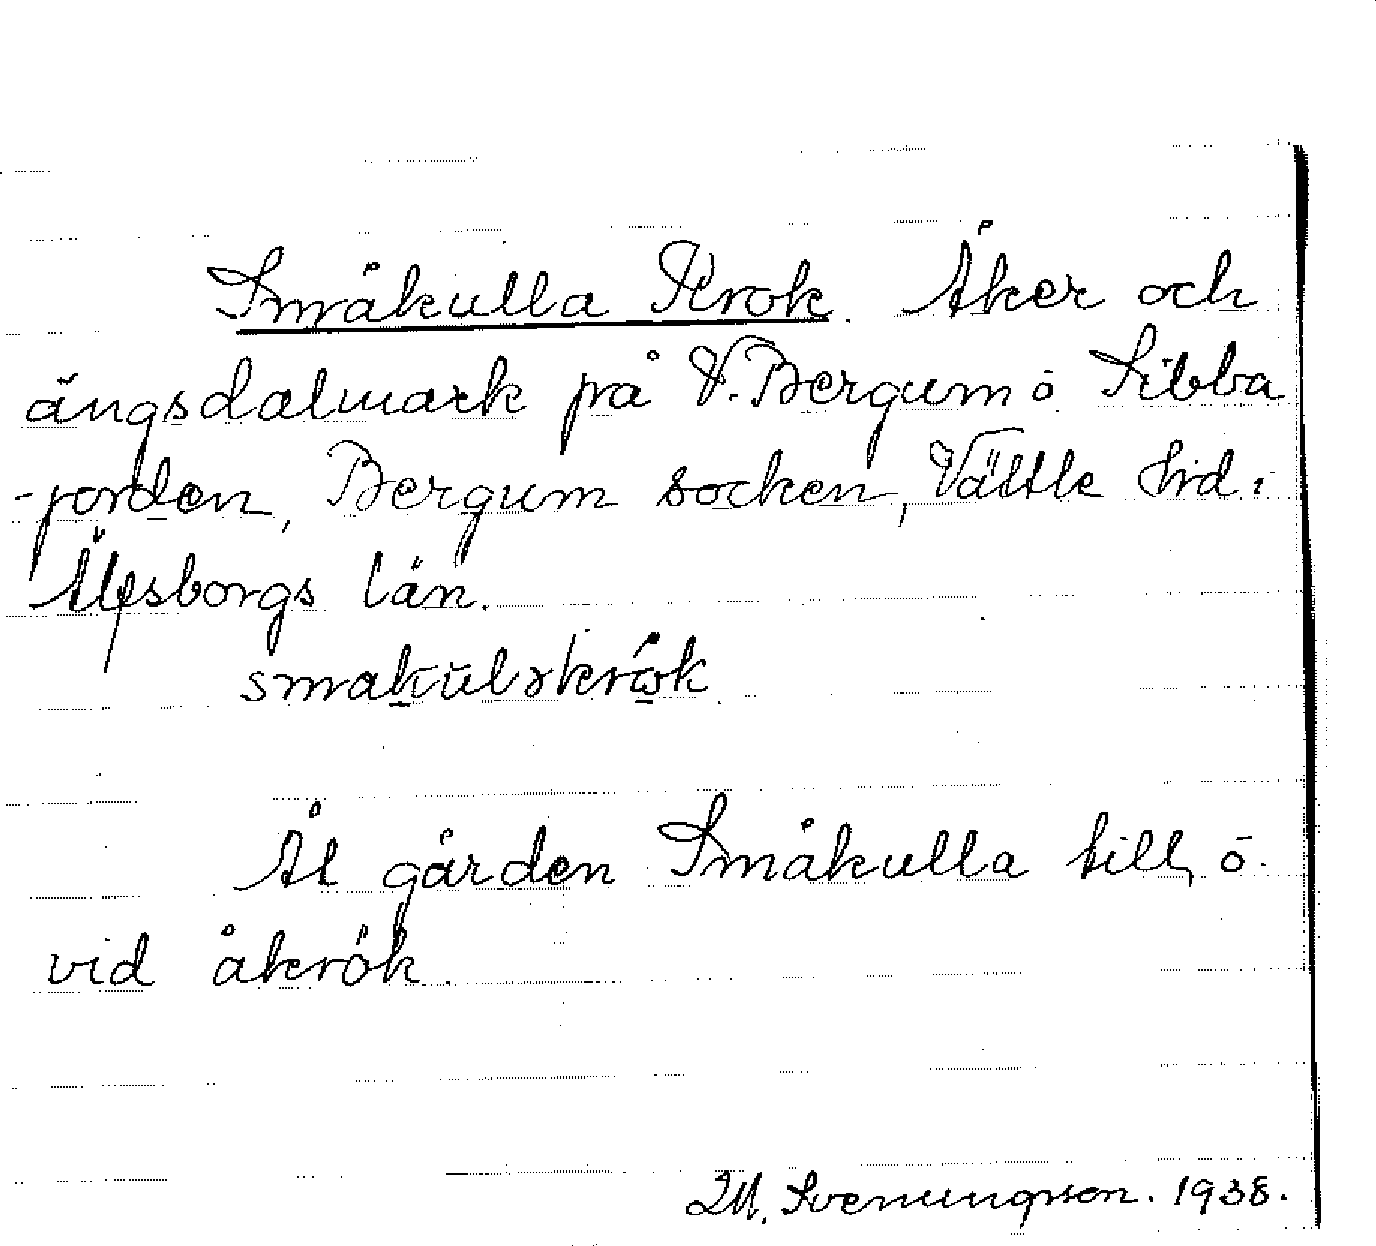 Småkulla Krok. Åker och
ängsdalmark på V. Bergum o. Sibba
-jorden, Bergum socken, Vättle hd.
Älfsborgs län.
Åt gården Småkulla till, o.
vid åkrök.
M. Svenungsson. 1938.